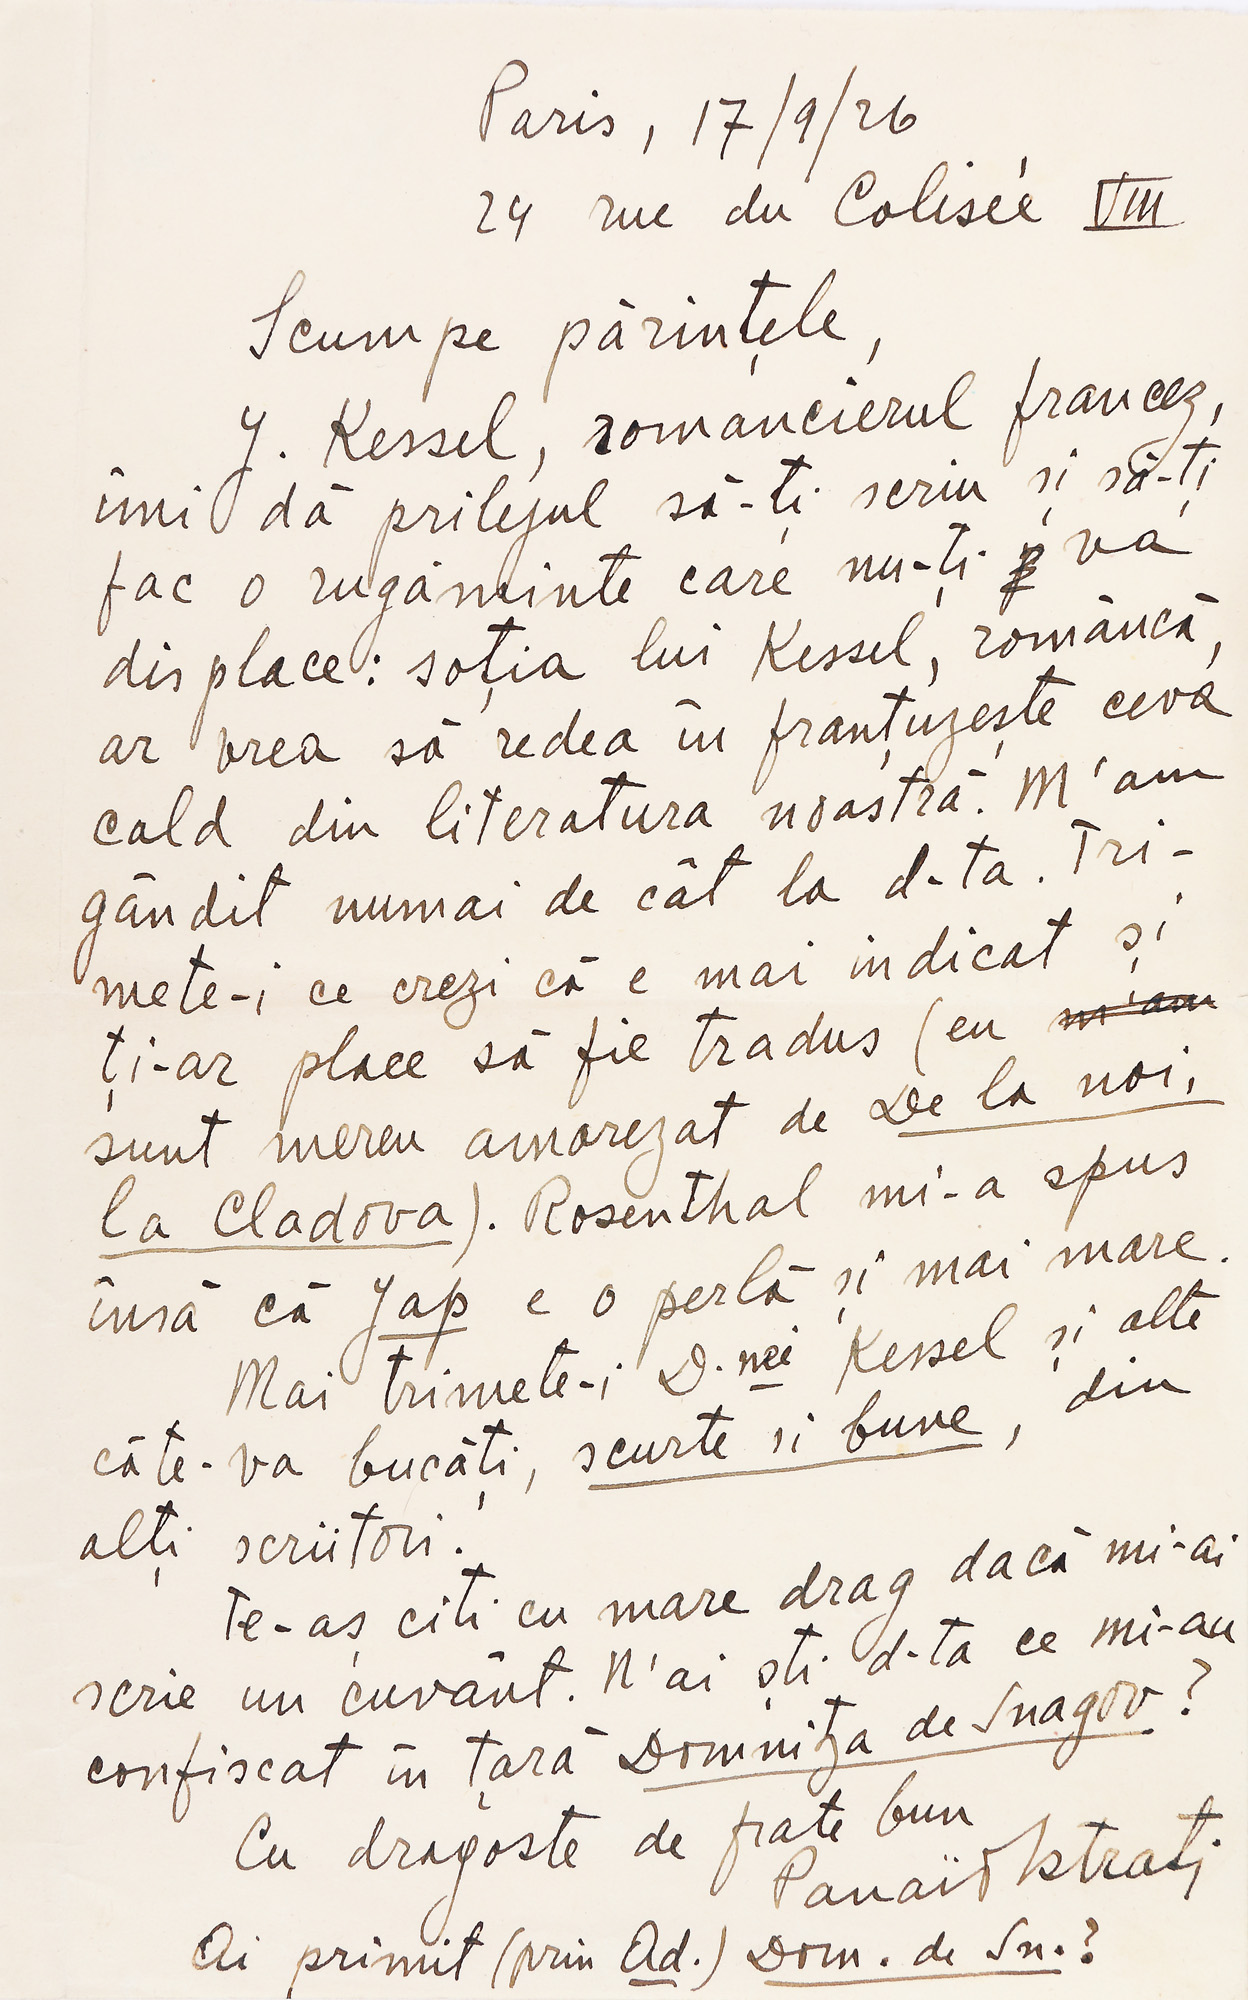 Paris, 17/9/26
24 rue du Colisée VIII
Scumpe părințele,
J. Kessel, romancierul francez,
îmi dă prilejul să-ți scriu și să-ți
fac o rugăminte care nu-ți va
displace: soția lui Kessel, româncă,
ar vrea să redea în franțuzește ceva
cald din literatura noastră. M'am
gândit numai de cât la d-ta. Tri-
mete-i ce crezi că e mai indicat și
ți-ar place să fie tradus (eu m'am
sunt mereu amorezat de De la noi,
la Cladova). Rosenthal mi-a spus
însă că Jap e o perlă și mai mare.
Mai trimete-i D-nei Kessel și alte
câte-va bucăți, scurte si bune, din
alți scriitori.
Te-aș citi cu mare drag dacă mi-ai
scrie un cuvânt. N'ai ști d-ta ce mi-au
confiscat în țară Domnitza de Snagov?
Cu dragoste de frate bun
Panaït Istrati
Ai primit (prin Ad.) Dom. de Sn.?